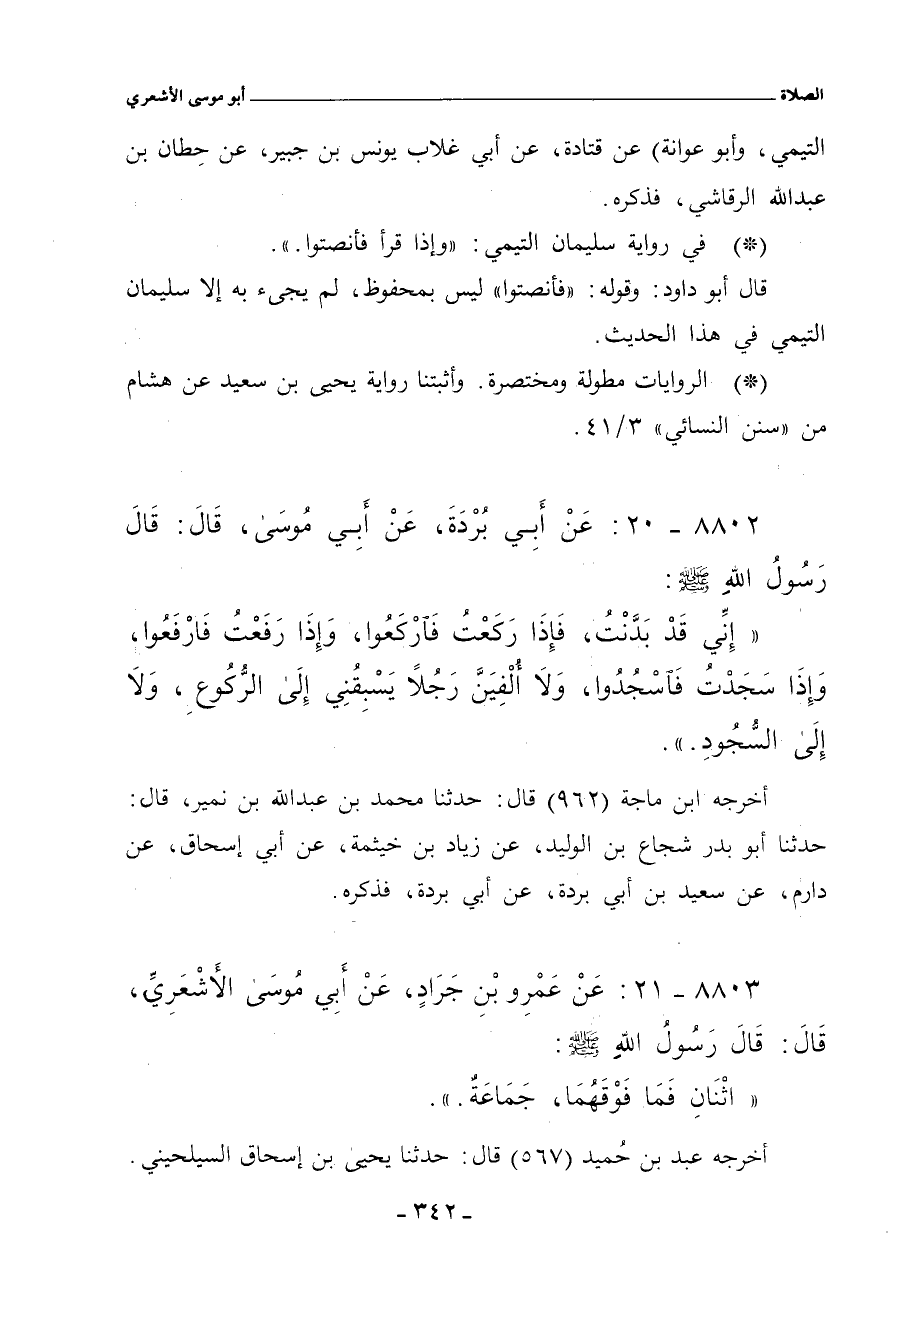 الصلاة ــــــــــــــــ أبو موسى الأشعري
التيمي، وأبو عوانة) عن قتادة، عن أبي غلاب يونس بن جبير، عن حِطان بن
عبدالله الرقاشي، فذكره.
(*) في رواية سليمان التيمي: «وإذا قرأ فأنصتوا.».
قال أبو داود: وقوله: «فأنصتوا» ليس بمحفوظ، لم يجيء به إلا سليمان
التيمي في هذا الحديث.
(*) الروايات مطولة ومختصرة. وأثبتنا رواية يحيى بن سعيد عن هشام
من «سنن النسائي» ٤١/٣.
٨٨٠٢ ـ ٢٠: عَنْ أَبِي بُرْدَةَ، عَنْ أَبِي مُوسَىٰ، قَالَ: قَالَ
رَسُولُ اللهِ ﷺ:
« إِنِّي قَدْ بَدَّنْتُ، فَإِذَا رَكَعْتُ فَٱرْكَعُوا، وَإِذَا رَفَعْتُ فَارْفَعُوا،
وَإِذَا سَجَدْتُ فَٱسْجُدُوا، وَلَا أُلْفِيَنَّ رَجُلاً يَسْبِقُنِي إِلَىٰ الرُّكُوعِ، وَلَا
إِلَىٰ السُّجُودِ.».
أخرجه ابن ماجة (٩٦٢) قال: حدثنا محمد بن عبدالله بن نمير، قال:
حدثنا أبو بدر شجاع بن الوليد، عن زياد بن خيثمة، عن أبي إسحاق، عن
دارم، عن سعيد بن أبي بردة، عن أبي بردة، فذكره.
٨٨٠٣ ـ ٢١: عَنْ عَمْرِو بْنِ جَرَادٍ، عَنْ أَبِي مُوسَىٰ الأَشْعَرِيِّ،
قَالَ: قَالَ رَسُولُ اللهِ ﷺ:
« اثْنَانِ فَمَا فَوْقَهُمَا، جَمَاعَةٌ.».
أخرجه عبد بن حُميد (٥٦٧) قال: حدثنا يحيىٰ بن إسحاق السيلحيني.
ـ ٣٤٢ ـ